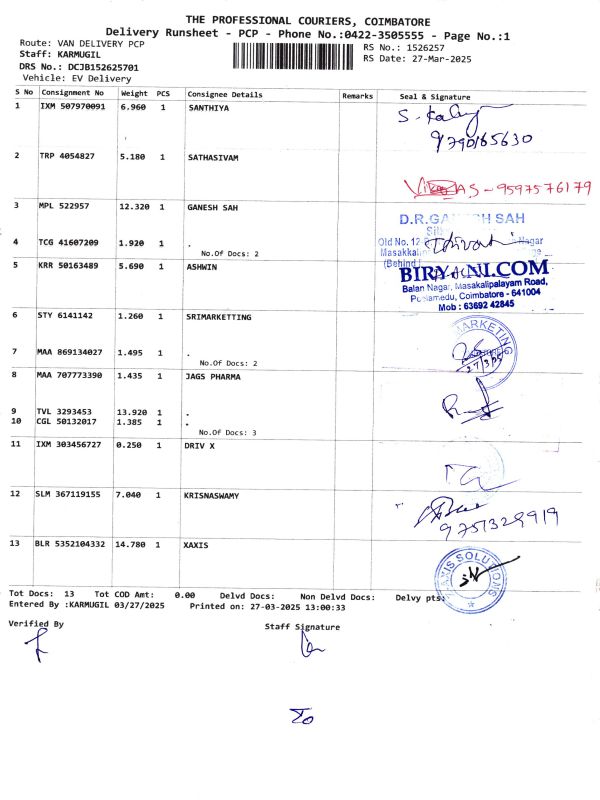 THE PROFESSIONAL COURIERS, COIMBATORE
Delivery Runsheet - PCP - Phone No.:0422-3505555 - Page No.:1
Route: VAN DELIVERY PCP RS No.: 1526257
Staff: KARMUGIL RS Date: 27-Mar-2025
DRS No.: DCJB152625701
Vehicle: EV Delivery
S No Consignment No Weight PCS Consignee Details Remarks Seal & Signature
1 IXM 507970091 6.960 1 SANTHIYA
9790165630
2 TRP 4054827 5.180 1 SATHASIVAM
AS - 9597576179
3 MPL 522957 12.320 1 GANESH SAH
D.R.GA SH SAH
4 TCG 41607209 1.920 1 . Old No. 12 Nagar
No.Of Docs: 2 Masakkal
(Behind
5 KRR 50163489 5.690 1 ASHWIN
BIRYANI.COM
Balan Nagar, Masakalipalayam Road,
Puliamedu, Coimbatore - 641004
Mob : 63692 42845
6 STY 6141142 1.260 1 SRIMARKETTING
MARKETING
7 MAA 869134027 1.495 1 .
No.Of Docs: 2
27/3/25
8 MAA 707773390 1.435 1 JAGS PHARMA
9 TVL 3293453 13.920 1 .
10 CGL 50132017 1.385 1 .
No.Of Docs: 3
11 IXM 303456727 0.250 1 DRIV X
12 SLM 367119155 7.040 1 KRISNASWAMY
9751329919
13 BLR 5352104332 14.780 1 XAXIS
XAXIS SOLUTIONS
Tot Docs: 13 Tot COD Amt: 0.00 Delvd Docs: Non Delvd Docs: Delvy pts:
Entered By :KARMUGIL 03/27/2025 Printed on: 27-03-2025 13:00:33
Verified By Staff Signature